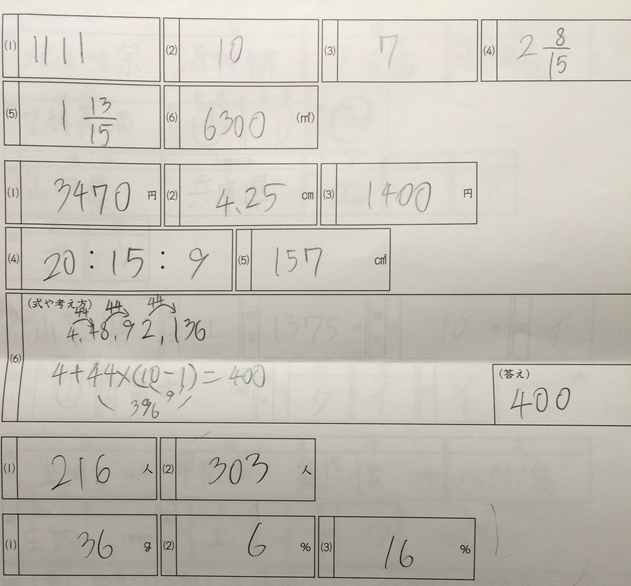 (1) 1111 (2) 10 (3) 7 (4) 2 8/15
(5) 1 13/15 (6) 6300 (㎡)
(1) 3470 円 (2) 4.25 cm (3) 1400 円
(4) 20:15:9 (5) 157 ㎠
(式や考え方)
44 44 44
4,48,92,136
(6)
4+44×(10-1)=400
9
396
(答え)
400
(1) 216 人 (2) 303 人
(1) 36 g (2) 6 % (3) 16 %